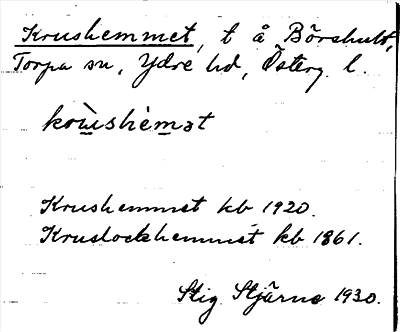 Krushemmet, t å Börshult,
Torpa sn, Ydre hd, Österg. l.
kròu̲shèm̲ət
Krushemmet kb 1920.
Kruslockhemmet kb 1861.
Stig Stjärne 1930.